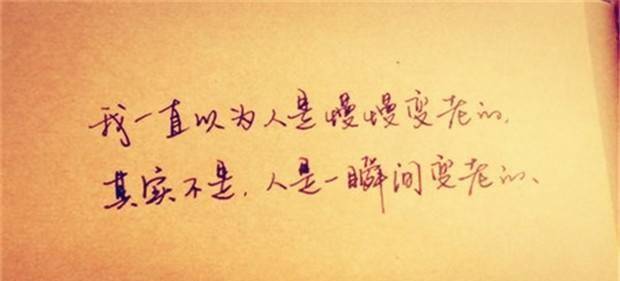 我一直以为人是慢慢变老的，
其实不是，人是一瞬间变老的、